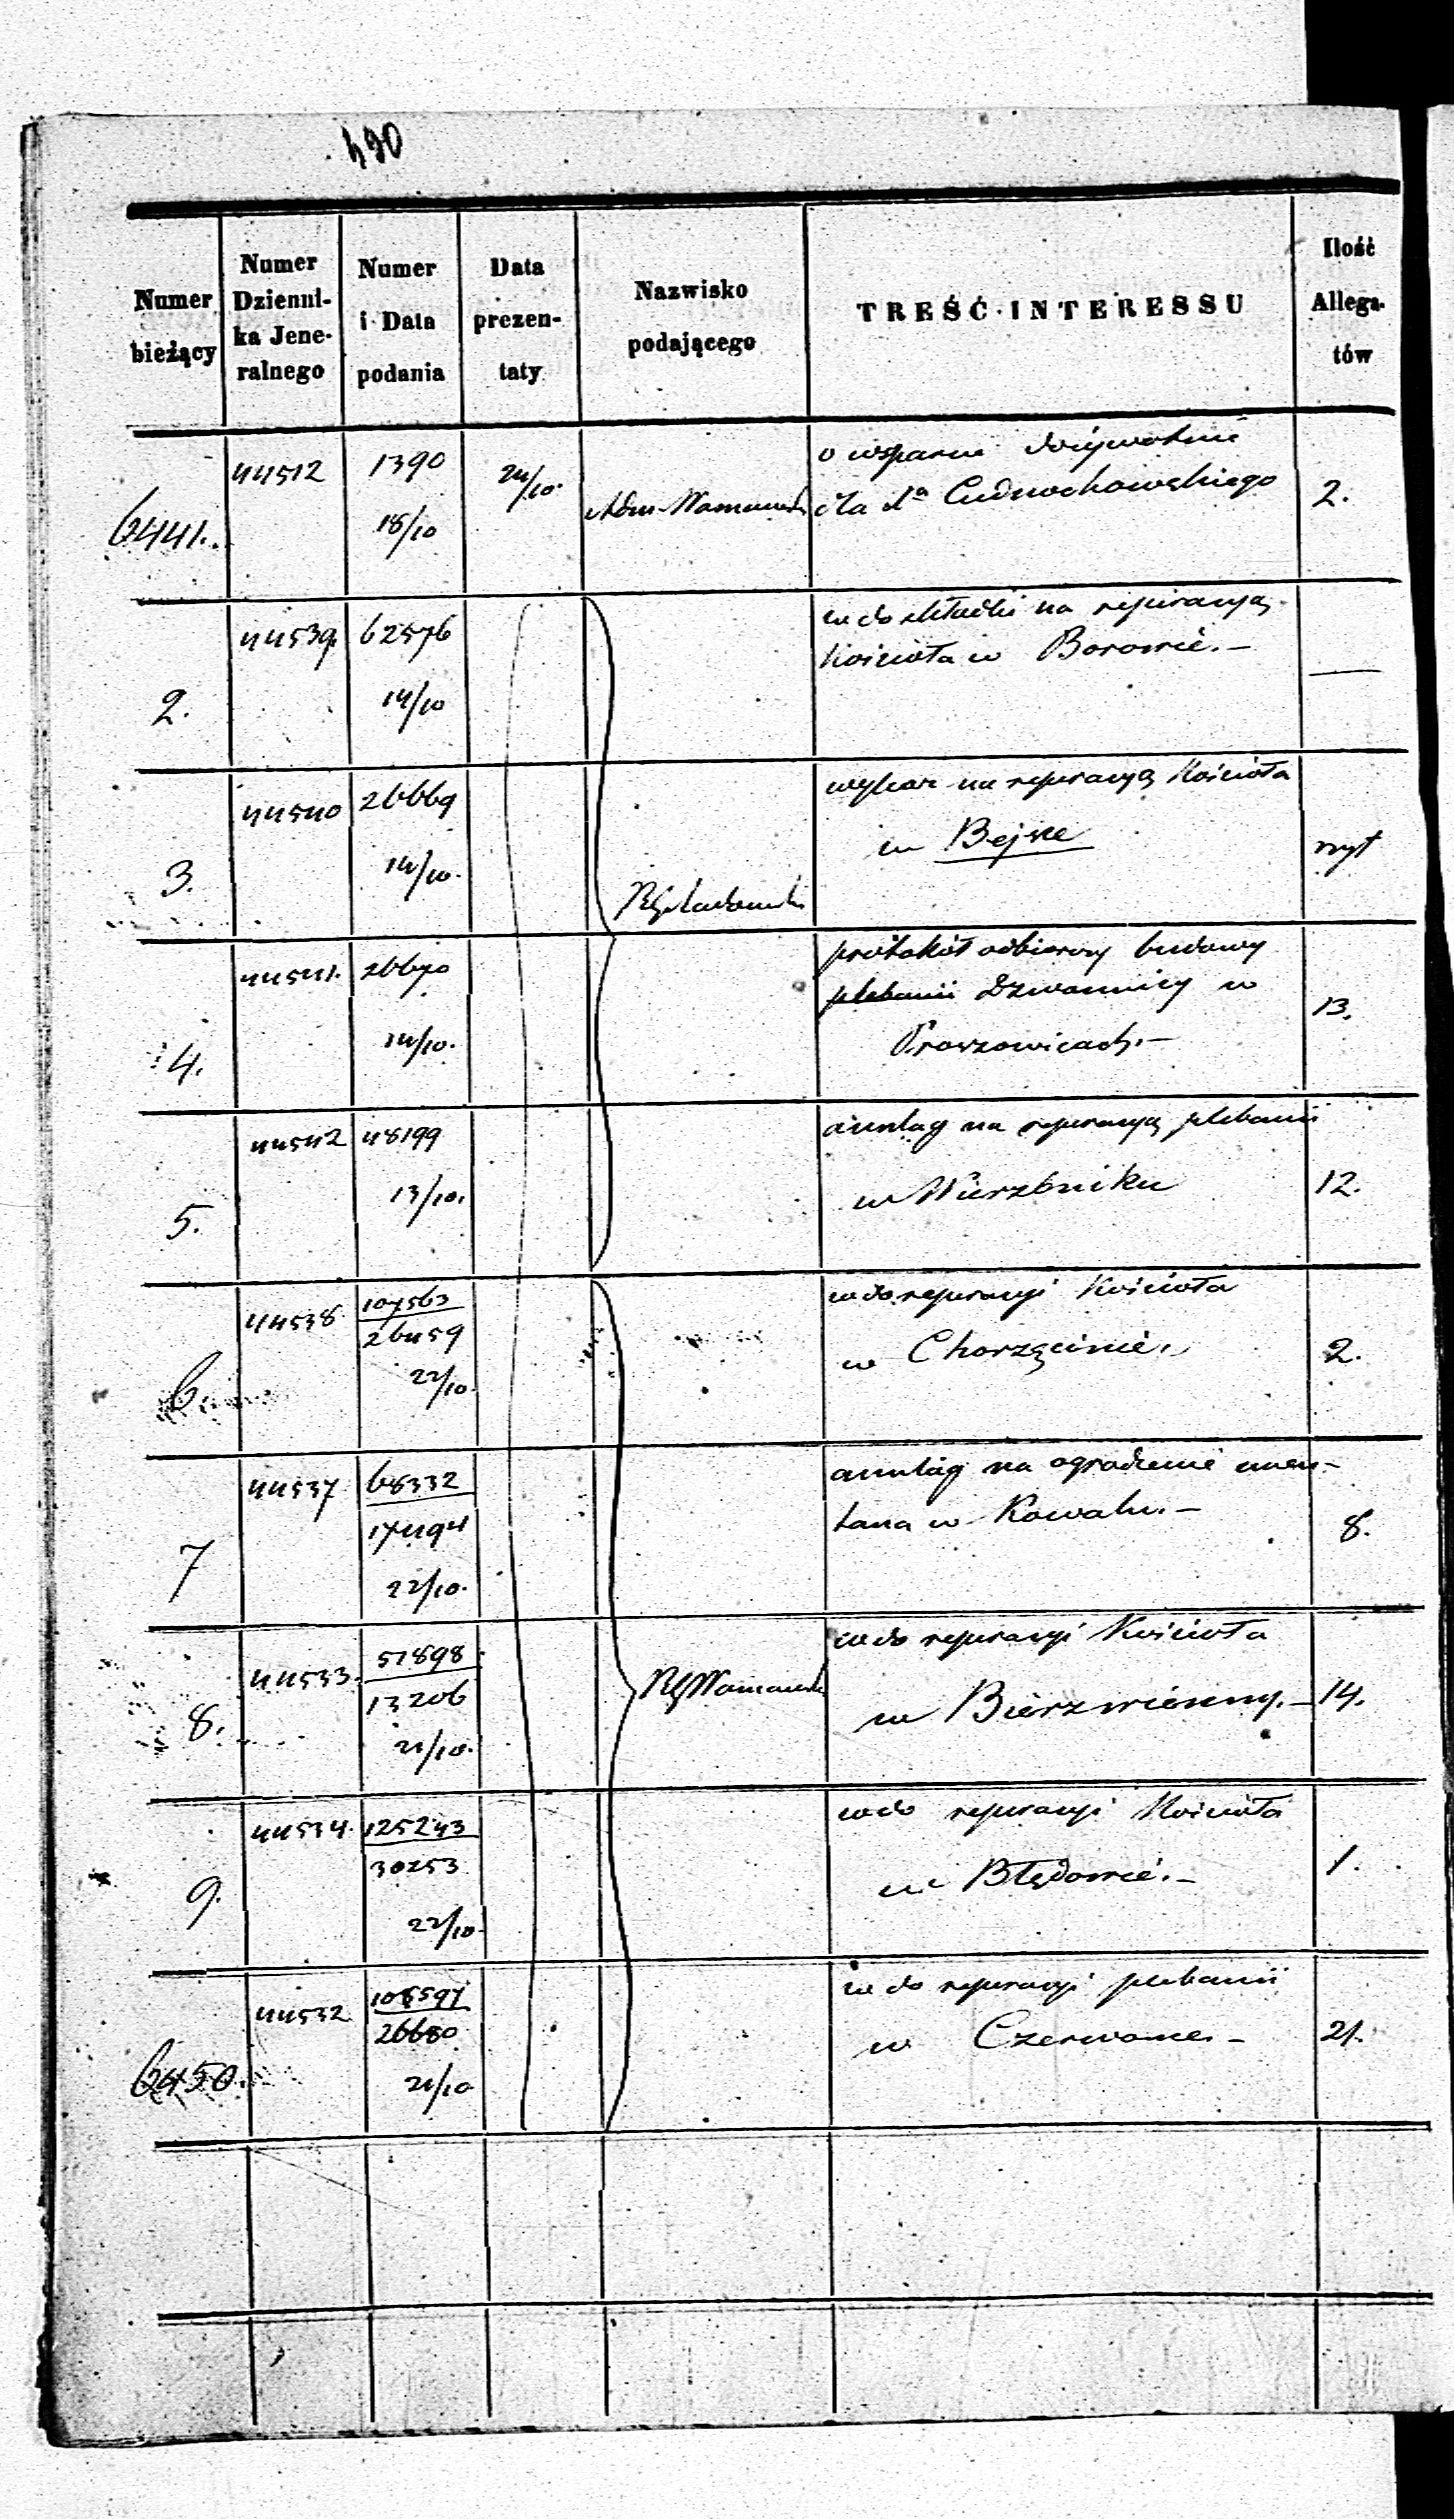 490
Numer bieżący
Numer Dzienni-ka Jene-ralnego
Numer i Data podania
Data prezen-taty
Nazwisko podającego
TREŚĆ INTERESSU
Ilość Allega-tów
6441. 44512 1390 18/10 24/10.
o wsparcie dożywotnie
dla Xa Cudnochowskiego 2.
2. 44539. 62576 14/10
w do składki na reperacyą
Kościoła w Borowie. — —
3. 44540 26669 14/10.
wykaz na reperacyą Kościoła
w Bejsce
4. 44541. 26670 14/10.
protokół odbiorczy budowy
plebanii Dzwonnicy w
Proszowicach. — 13.
5. 44542 48199 13/10.
anszlag na reperacyą plebanii
w Wierzbniku 12.
6. 44538 107563 26459 22/10.
w do reperacyi Kościoła
w Chorzęcinie. 2.
7 44537 68332 17494 22/10.
anszlag na ogrodzenie cmen-
tarza w Kowalu. — 8.
8. 44533. 51898 13206 21/10.
w do reperacyi Kościoła
w Bierzwienny. — 14.
9. 44534. 125243 30253 22/10.
w do reperacyi Kościoła
w Błędowie. — 1.
6450. 44532 108597 26680 21/10
w do reperacyi plebanii
w 21.